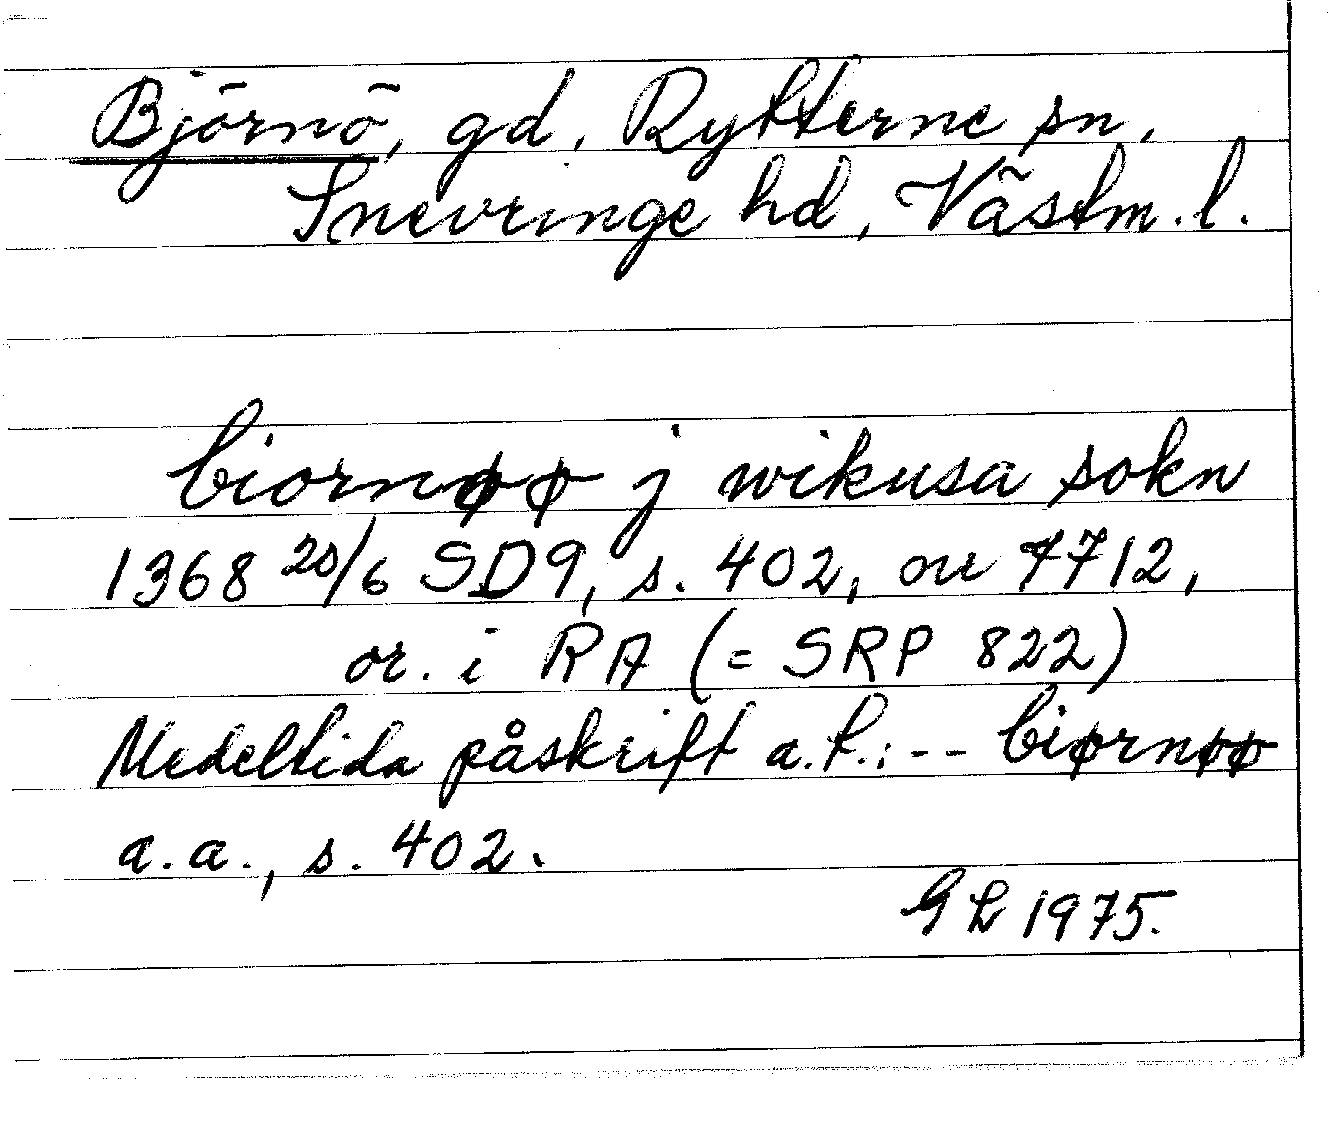 Björnö, gd, Rytterne sn,
Snevringe hd, Västm. l.
biornøø j wikusa sokn
1368 20/6 SD9, s. 402, nr 7712,
or. i RA (= SRP 822)
Medeltida påskrift a.t.: -- biørnøø
a.a., s. 402.
GL 1975.